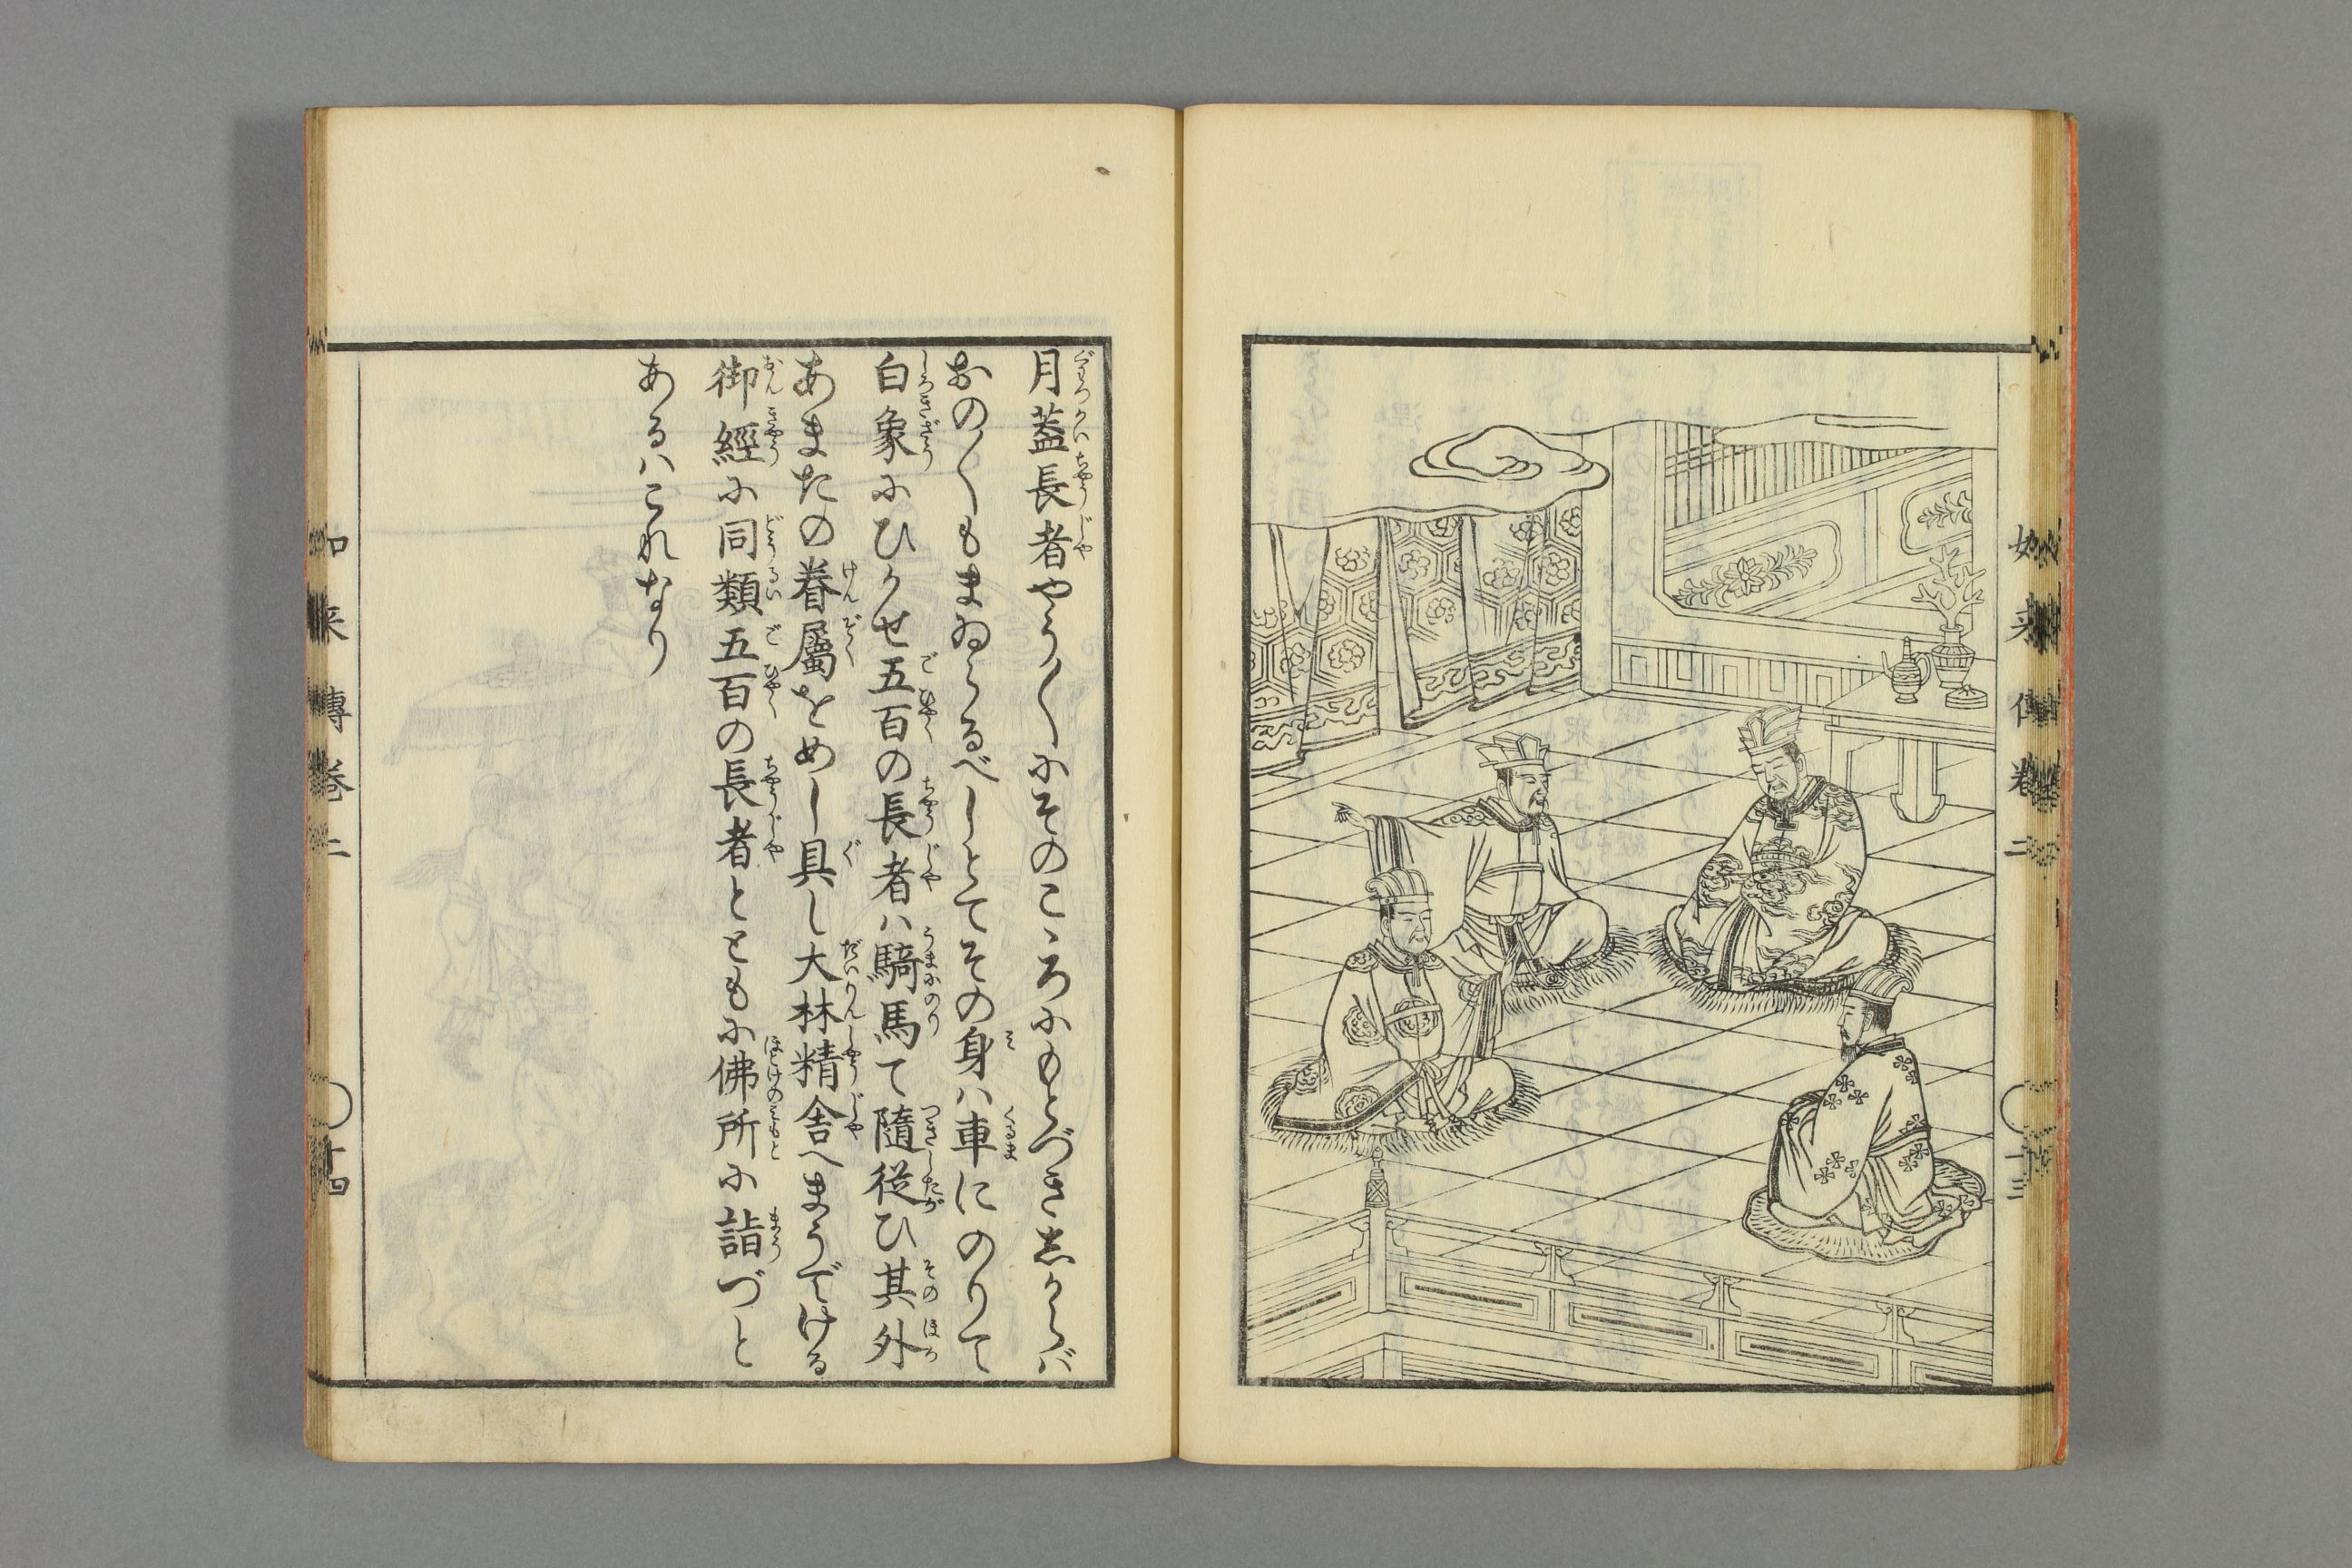 如来傳巻二 ○十三
月蓋長者やう〳〵にそのこゝろにもとづきしからバ
おの〳〵もまゐらるべしとてその身ハ車にのりて
白象にひかせ五百の長者ハ騎馬て隨從ひ其外
あまたの眷屬をめし具し大林精舎へまうでける
御經に同類五百の長者とともに佛所に詣づと
あるハこれなり
如来傳巻二 ○十四